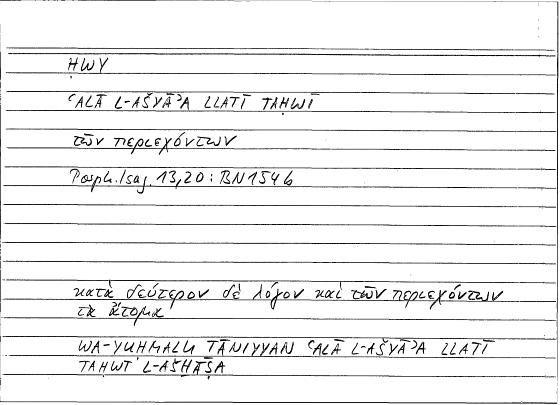 ḤWY
ʿALĀ L-AŠYĀʾA LLATĪ TAḤWĪ
τῶν περιεχόντων
Porph. Isag. 13,20: BN154b
κατὰ δεύτερον δὲ λόγον καὶ τῶν περιεχόντων
τὰ ἄτομα
WA-YUḤMALU ṮĀNIYYAN ʿALĀ L-AŠYĀʾA LLATĪ
TAḤWĪ L-AŠḪĀṢA